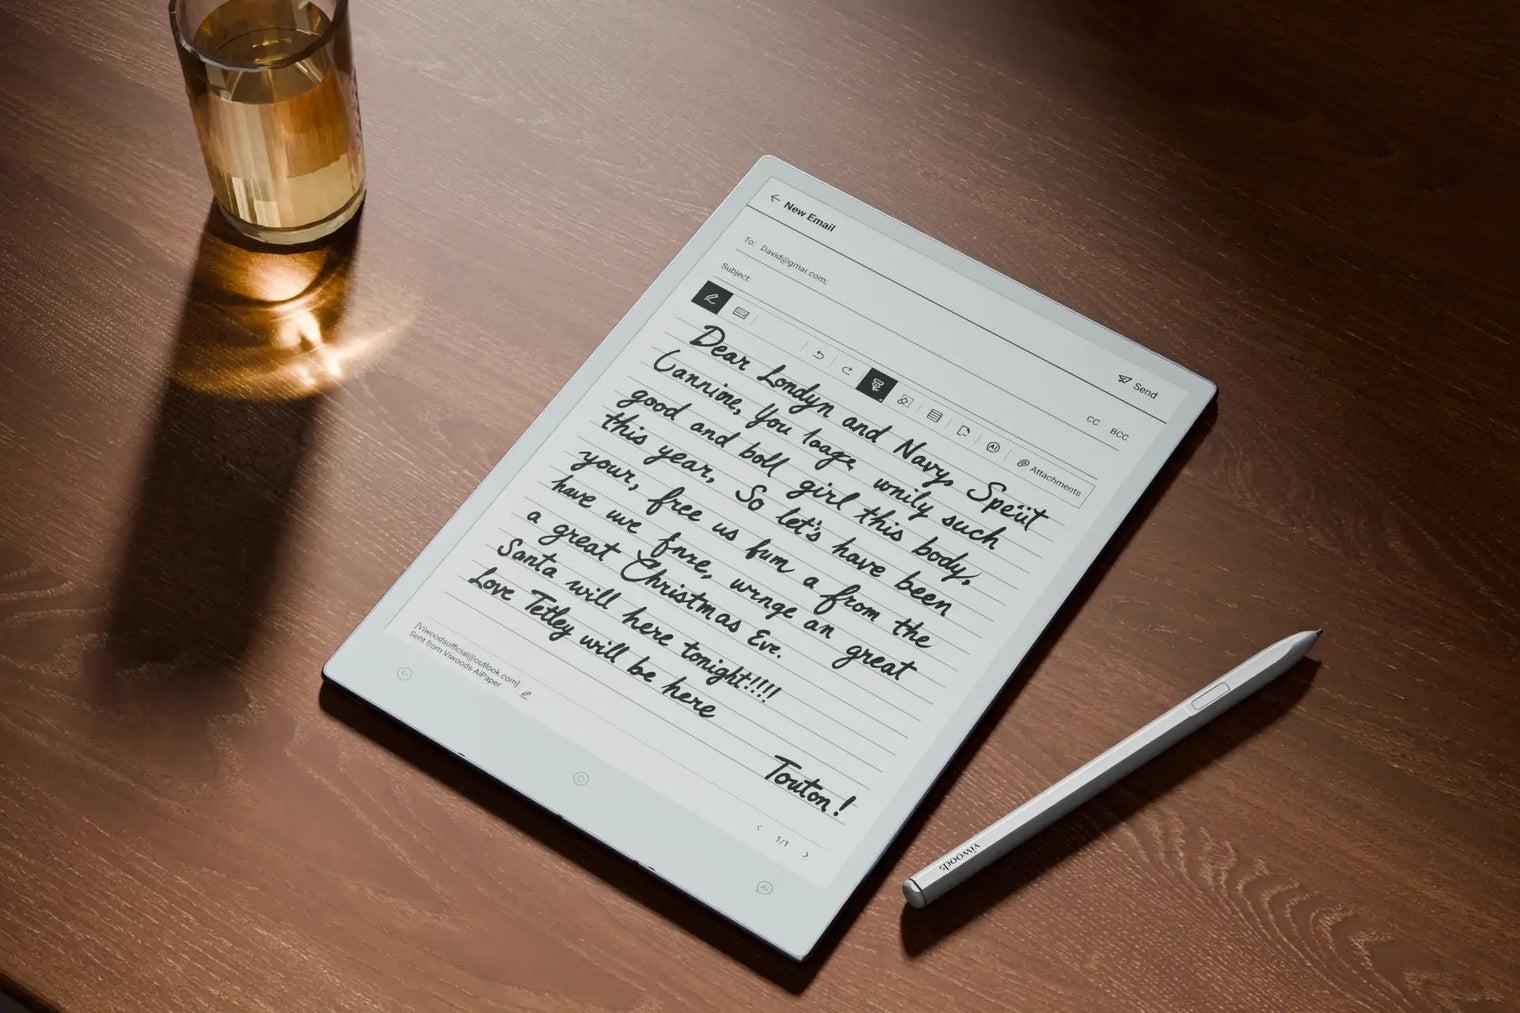 New Email
To: David@gmai.com;
Subject:
Send
CC BCC
Attachments
Dear Londyn and Navy, Speüt
Cannine, You loage wnily such
good and boll girl this body,
this year, So let's have been
your, free us fum a from the
have uve fnre, wrnge an great
a great Christmas Eve.
Santa will here tonight!!!!
Love Tetley will be here
Touton!
[Viwoodsofficial@outlook.com]
Sent from Viwoods AiPaper
1/1
AI
viwoods